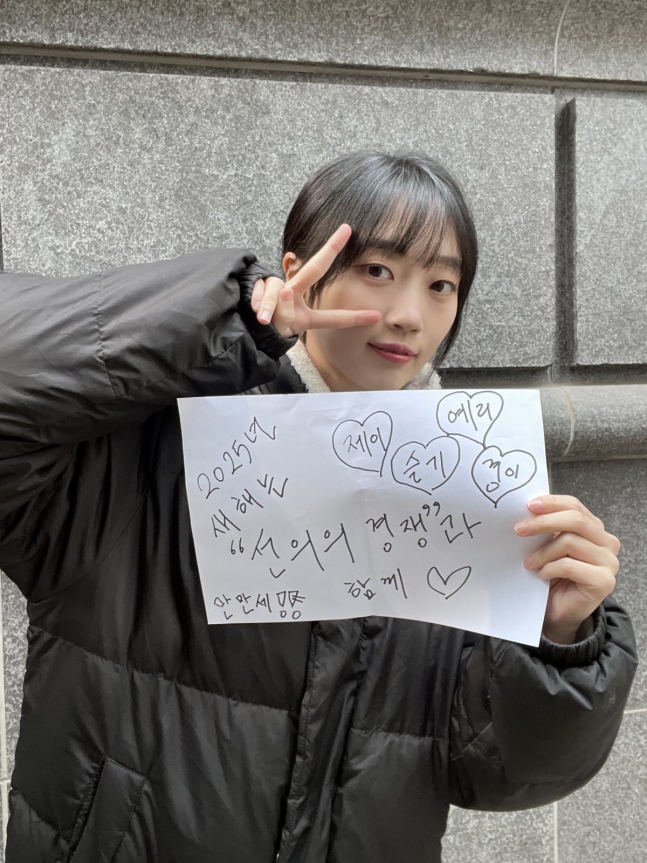 2025년
새해는
제이
예리
슬기
경이
“선의의 경쟁”과
함께 ♡
만만세